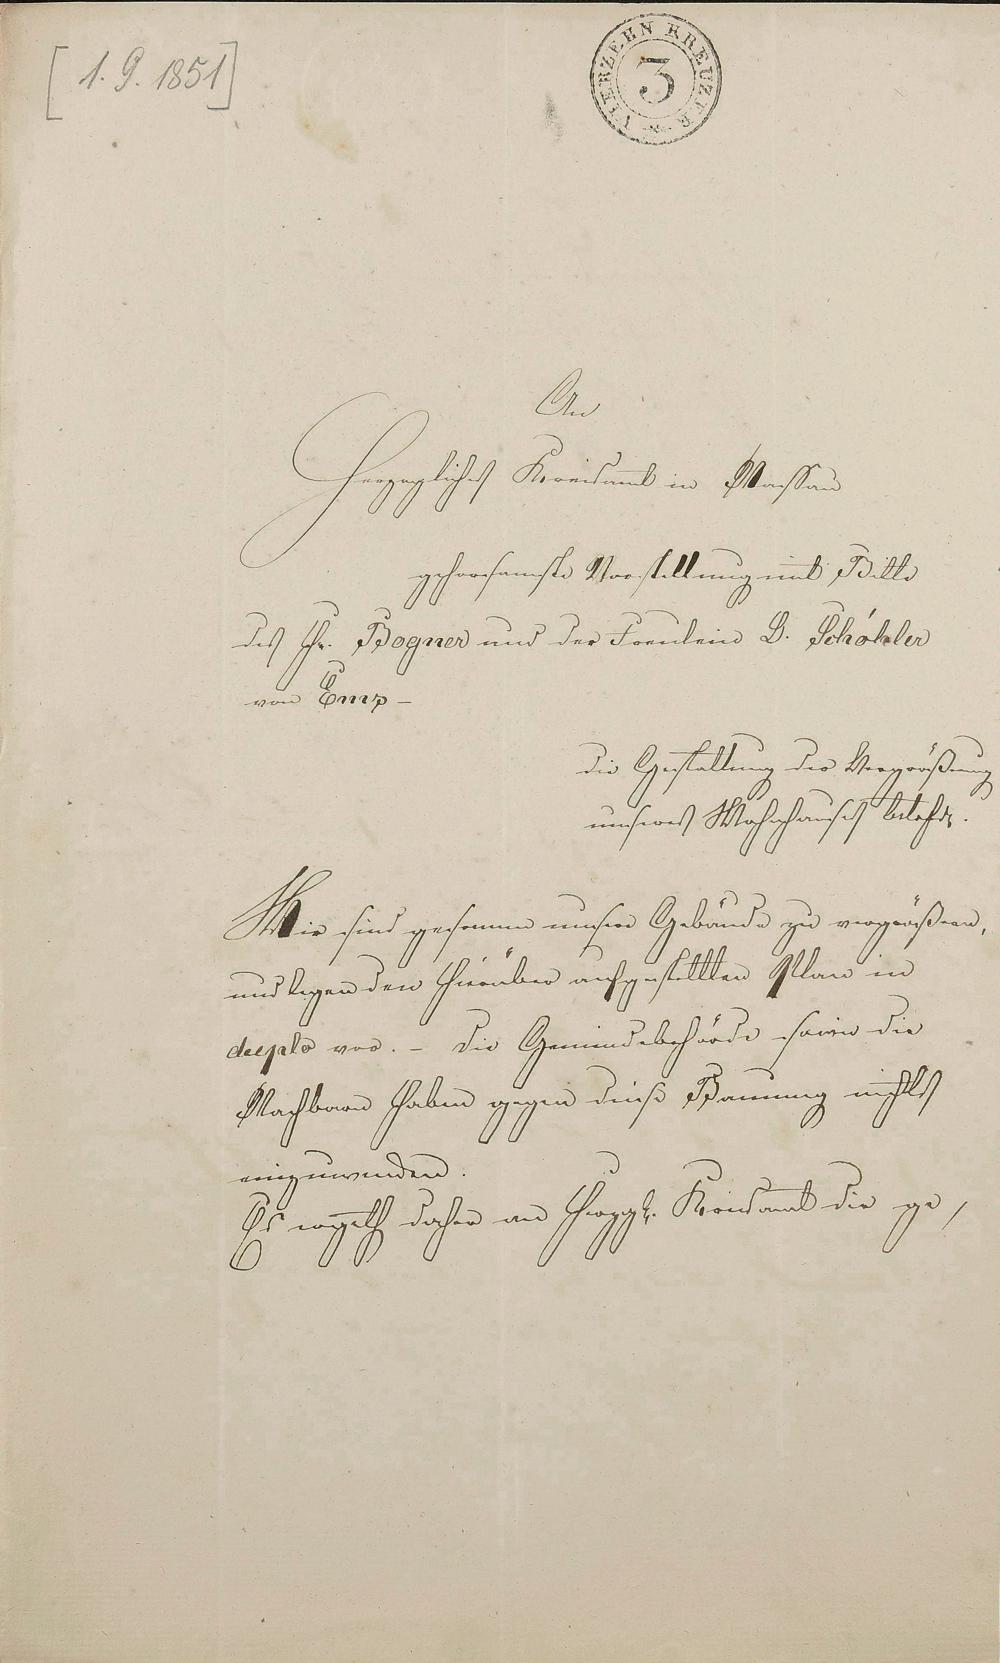 [1. 9. 1851]
VIERZEHN KREUZER
3
An
Herzogliches Kreisamt in Nassau
gehorsamste Vorstellung und Bitte
des Hr. Bogner und der Freulein D. Schöhler
von Ems –
die Gestattung der Vergrößerung
unseres Wohnhauses betrfd.
Wir sind gesonnen unser Gebäude zu vergrößern,
und legen den hierüber aufgestellten Plan in
duplo vor. – Die Gemeindebehörde sowie die
Nachbarn haben gegen diese Bauung nichts
einzuwenden.
Es ergeth daher an Herzgl. Kreisamt die ge,